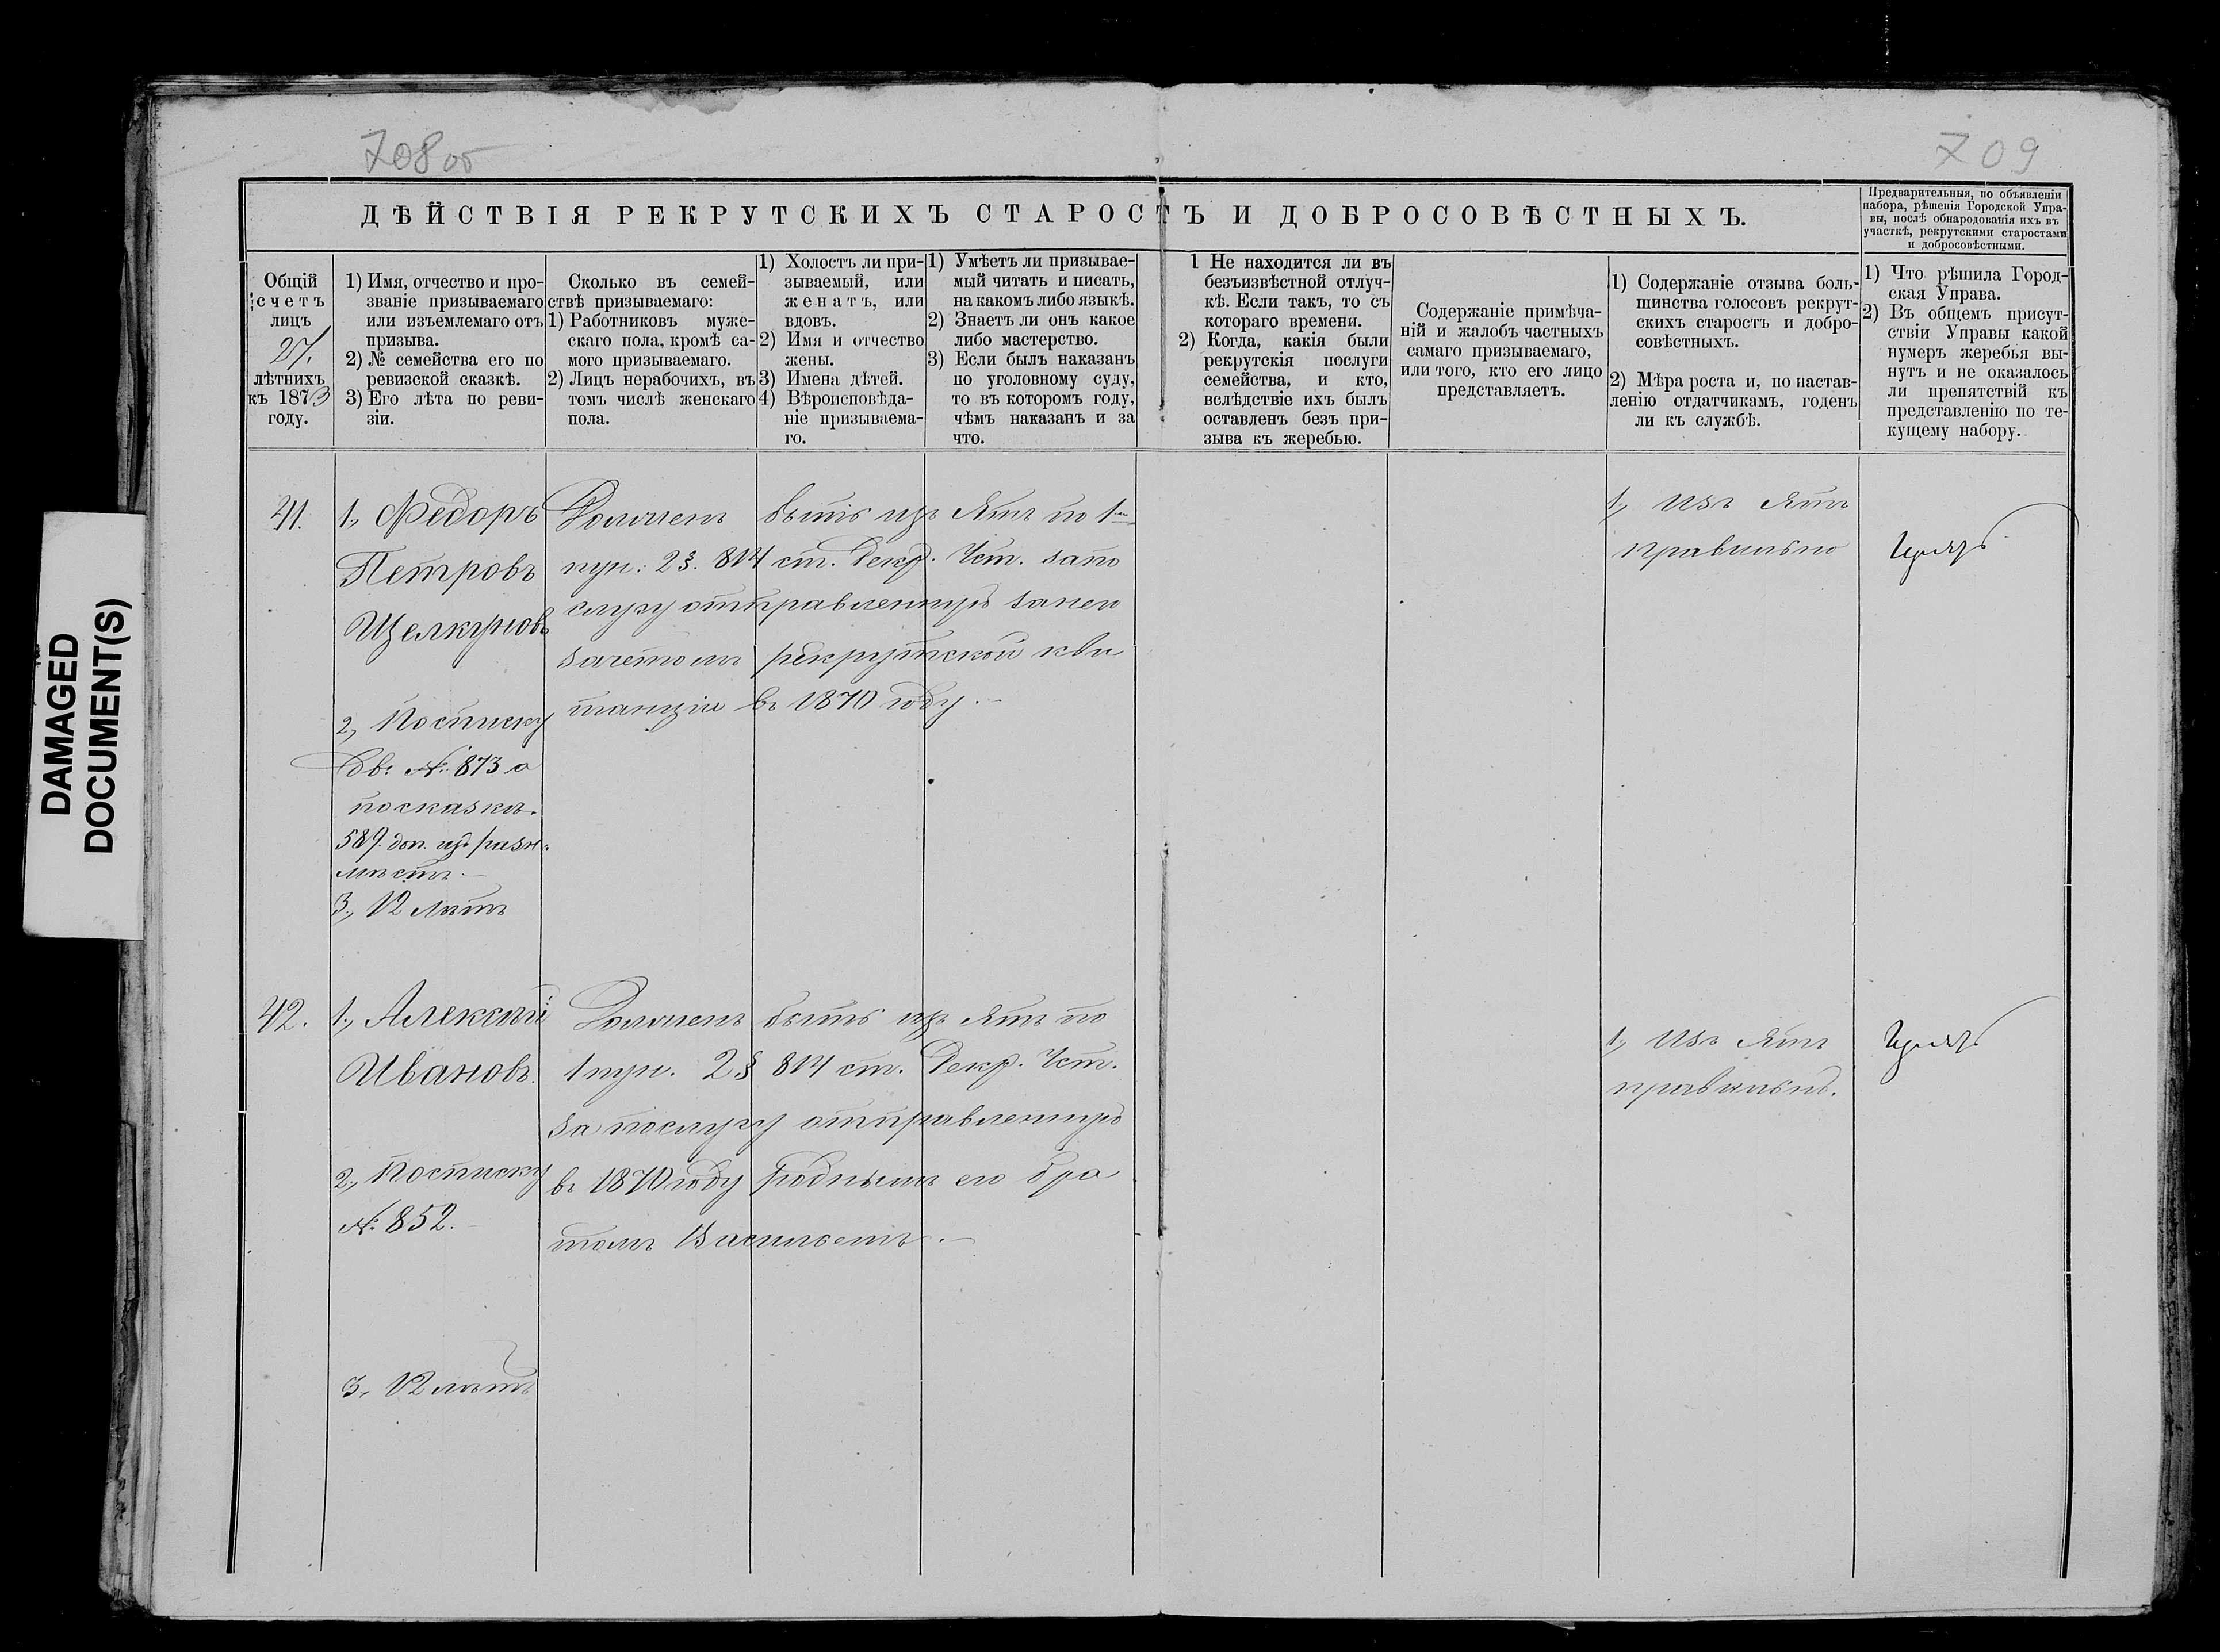 708 об
709
ДѢЙСТВІЯ РЕКРУТСКИХЪ СТАРОСТЪ И ДОБРОСОВѢСТНЫХЪ.
Предварительныя, по объявленіи
набора, рѣшенія Городской Упра-
вы, послѣ обнародованія ихъ въ
участкѣ, рекрутскими старостами
и добросовѣстными.
Общій
счетъ
лицъ
27.
лѣтнихъ
къ 1873
году.
1) Имя, отчество и про-
званіе призываемаго
или изъемлемаго отъ
призыва.
2) № семейства его по
ревизской сказкѣ.
3) Его лѣта по реви-
зіи.
Сколько въ семей-
ствѣ призываемаго:
1) Работниковъ муже-
скаго пола, кромѣ са-
мого призываемаго.
2) Лицъ нерабочихъ, въ
томъ числѣ женскаго
пола.
1) Холостъ ли при-
зываемый, или
женатъ, или
вдовъ.
2) Имя и отчество
жены.
3) Имена дѣтей.
4) Вѣроисповѣда-
ніе призываема-
го.
1) Умѣетъ ли призывае-
мый читать и писать,
на какомъ либо языкѣ.
2) Знаетъ ли онъ какое
либо мастерство.
3) Если былъ наказанъ
по уголовному суду,
то въ которомъ году,
чѣмъ наказанъ и за
что.
1 Не находится ли въ
безъизвѣстной отлуч-
кѣ. Если такъ, то съ
котораго времени.
2) Когда, какія были
рекрутскія послуги
семейства, и кто,
вслѣдствіе ихъ былъ
оставленъ безъ при-
зыва къ жеребью.
Содержаніе примѣча-
ній и жалобъ частныхъ
самаго призываемаго,
или того, кто его лицо
представляетъ.
1) Содержаніе отзыва боль-
шинства голосовъ рекрут-
скихъ старостъ и добро-
совѣстныхъ.
2) Мѣра роста и, по настав-
ленію отдатчикамъ, годенъ
ли къ службѣ.
1) Что рѣшила Город-
ская Управа.
2) Въ общемъ присут-
ствіи Управы какой
нумеръ жеребья вы-
нутъ и не оказалось
ли препятствій къ
представленію по те-
кущему набору.
41.
1., Федоръ
Петровъ
Щелкуновъ
2, По списку
№ 873 а
по сказкѣ.
589. доп. изъ разн.
мѣстъ.
3., 12 лѣтъ
Долженъ быть изъ Ятъ по 1
пун. 2 §. 814 ст. Рекр. Уст. за по
слугу отправленную
зачетомъ рекрутской кви
танціи въ 1870 году.
1, Изъ Ятъ
правильно
42.
1., Алексѣй
Ивановъ.
2., По списку
№ 852.
3., 12 лѣтъ
Долженъ быть изъ Ятъ по
1 пун. 2 § 814 ст. Рекр. Уст.
за послугу отправленную
въ 1870 году роднымъ его бра
томъ Васильемъ.
1, Изъ Ятъ
правильно.
DAMAGED
DOCUMENT(S)